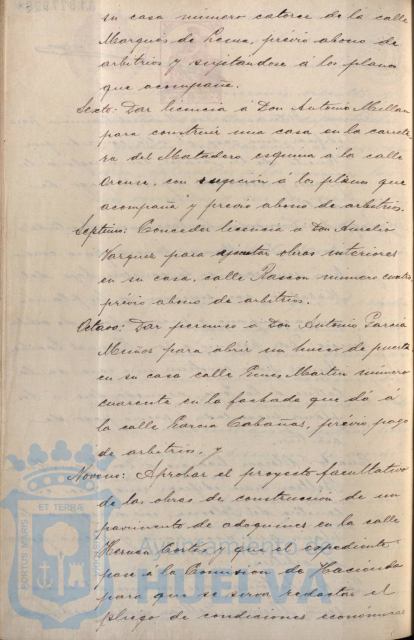 su casa número catorce de la calle
Marqués de              , prévio abono de
arbitrios y sujetandose á los planos
que acompaña.
Sexto: Dar licencia á Don Antonio Millan
para construir una casa en la carrete
ra del Matadero esquina á la calle
Orense, con sugeción á los planos que
acompaña y previo abono de arbitrios.
Septimo: Conceder licencia á Don Aurelio
Vazquez para ejecutar obras interiores
en su casa, calle Rascon número cuatro,
prévio abono de arbitrios.
Octavo: Dar permiso á Don Antonio Garcia
Muñoz para abrir un hueco de puerta
en su casa calle Martin número
cuarenta en la fachada que dá á
la calle Garcia Cabañas, prévio pago
de arbitrios, y
Noveno: Aprobar el proyecto facultativo
de las obras de construcción de un
pavimento de adoquines en la calle
Hernan Cortés y que el expediente
pase á la Comisión de Hacienda
para que se sirva redactar el
pliego de condiciones económicas
PORTUS MARIS
ET TERRÆ
Ayuntamiento de
HUELVA